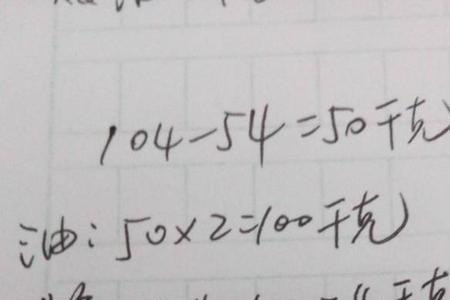 104-54=50千克
油:50×2=100千克
千克